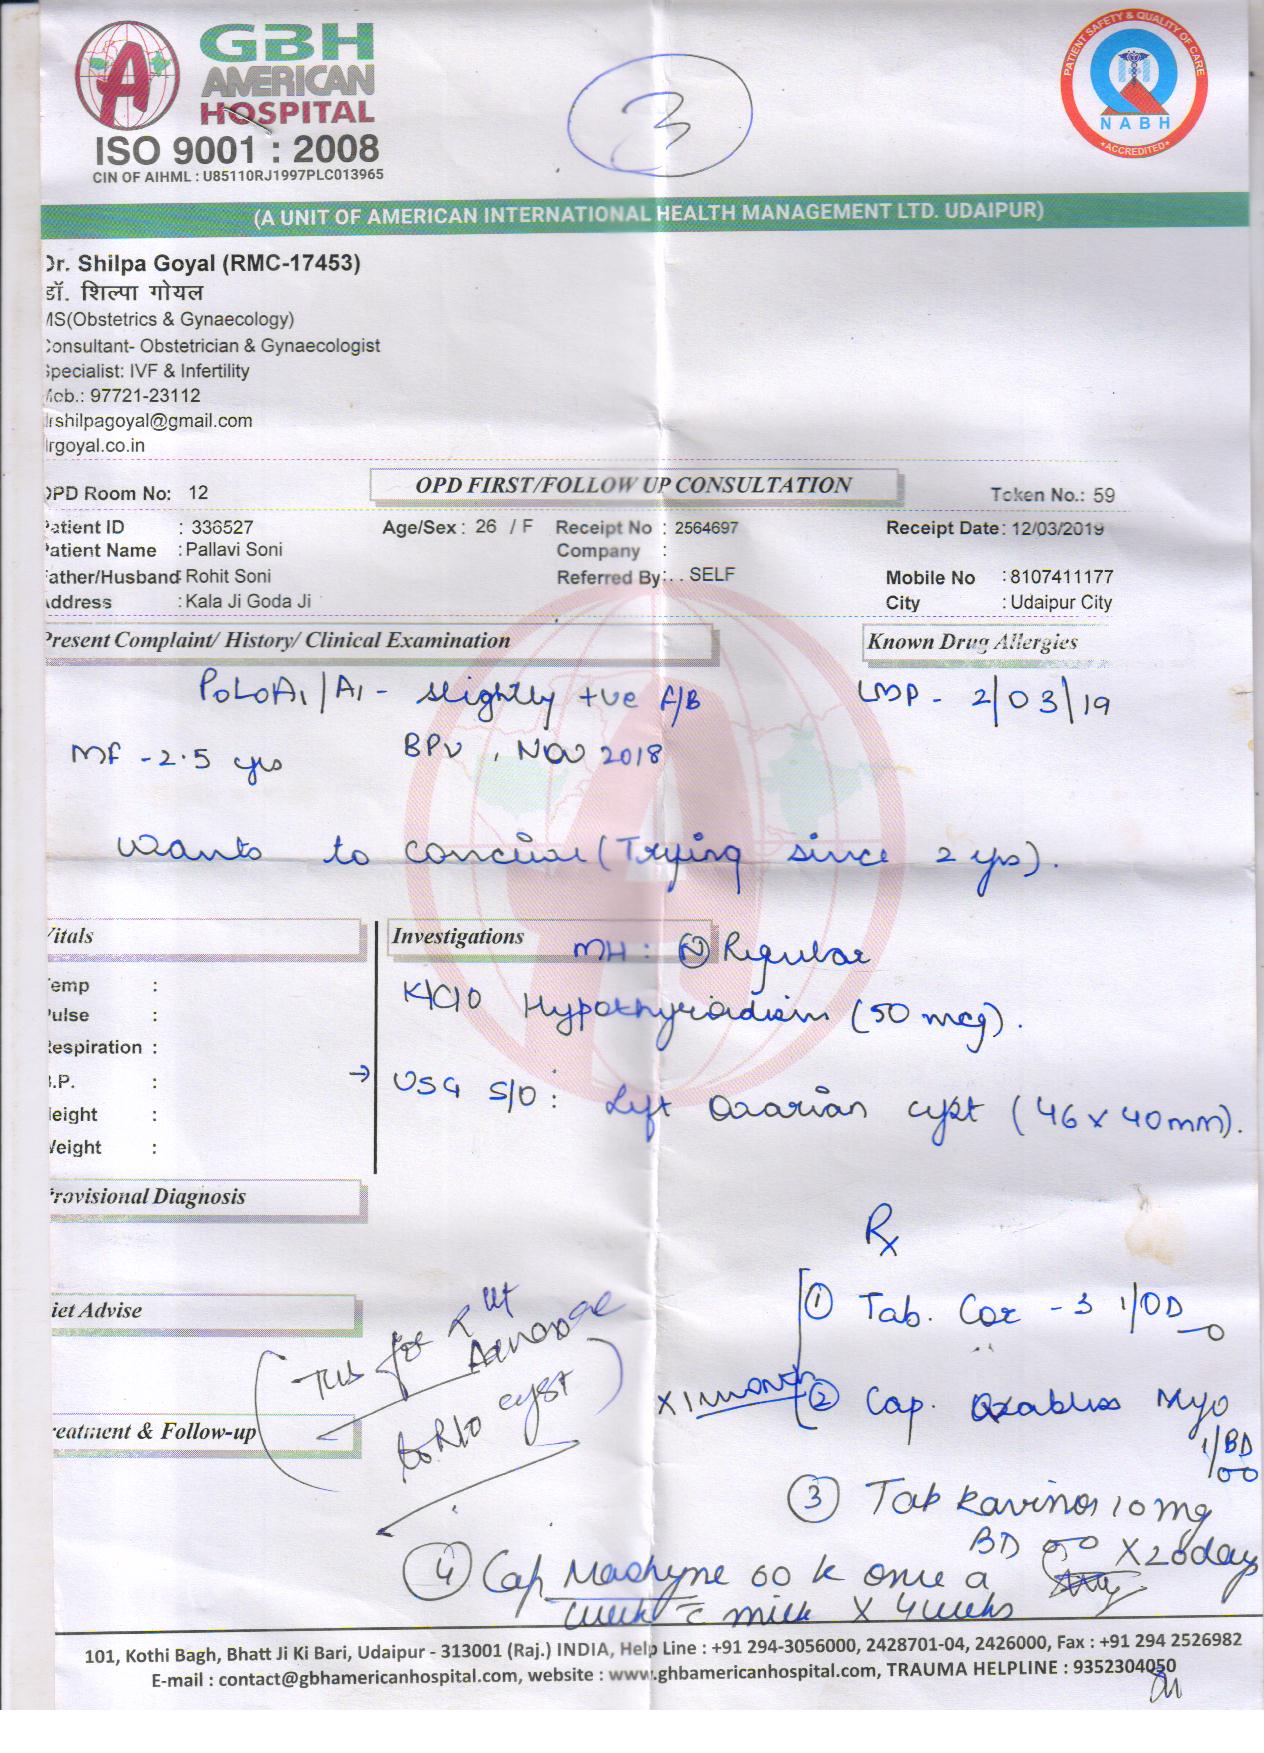 GBH
AMERICAN
HOSPITAL
ISO 9001 : 2008
CIN OF AIHML : U85110RJ1997PLC013965
3
PATIENT SAFETY & QUALITY OF CARE
NABH
ACCREDITED
(A UNIT OF AMERICAN INTERNATIONAL HEALTH MANAGEMENT LTD. UDAIPUR)
Dr. Shilpa Goyal (RMC-17453)
डॉ. शिल्पा गोयल
MS(Obstetrics & Gynaecology)
Consultant- Obstetrician & Gynaecologist
Specialist: IVF & Infertility
Mob.: 97721-23112
drshilpagoyal@gmail.com
drgoyal.co.in
OPD Room No: 12 OPD FIRST/FOLLOW UP CONSULTATION Token No.: 59
Patient ID : 336527 Age/Sex : 26 / F Receipt No : 2564697 Receipt Date : 12/03/2019
Patient Name : Pallavi Soni Company :
Father/Husband : Rohit Soni Referred By: . . SELF Mobile No : 8107411177
Address : Kala Ji Goda Ji City : Udaipur City
Present Complaint/ History/ Clinical Examination Known Drug Allergies
P0L0A1/A1 - slightly +ve F/B LMP - 2/03/19
MF - 2.5 yrs BPV , NOV 2018
wants to conceive (Trying since 2 yrs).
Vitals Investigations MH : N Regular
Temp :
Pulse :
Respiration :
B.P. :
Height :
Weight :
K/C/O Hypothyroidism (50 mcg).
→ USG S/O : Left Ovarian cyst (46 x 40mm).
Provisional Diagnosis
Rx
Diet Advise
1 Tab. Cor - 3 1/OD
x 1 month
2 Cap. Myo 1/BD
(TVS for
cyst
to R/O
Treatment & Follow-up
3 Tab 10 mg
BD X 20 days
4 Cap 60 k once a
week c milk X 4 weeks
101, Kothi Bagh, Bhatt Ji Ki Bari, Udaipur - 313001 (Raj.) INDIA, Help Line : +91 294-3056000, 2428701-04, 2426000, Fax : +91 294 2526982
E-mail : contact@gbhamericanhospital.com, website : www.ghbamericanhospital.com, TRAUMA HELPLINE : 9352304050